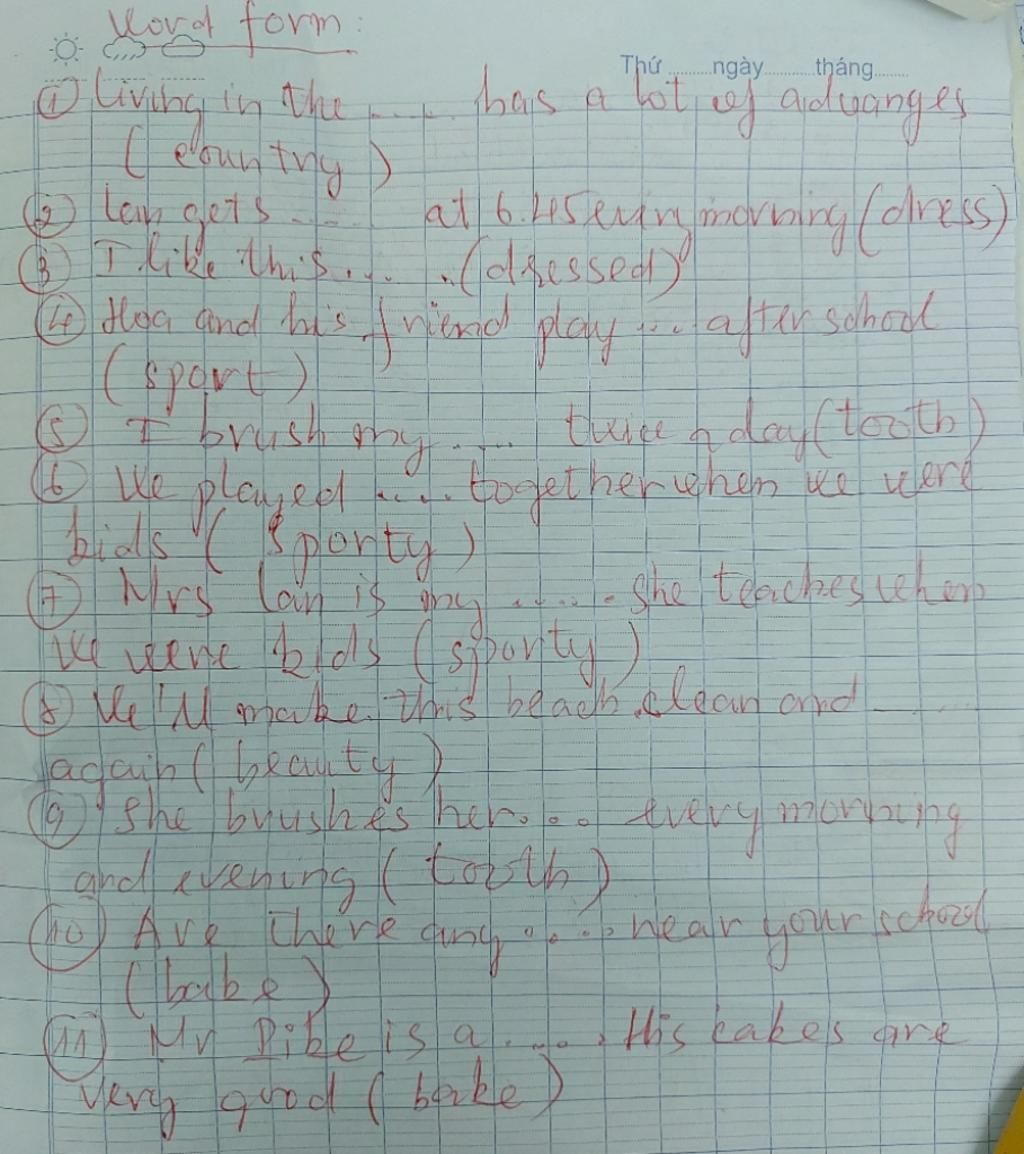 Word form:
Thứ ngày tháng
① Living in the ..... has a lot of advanges
(country)
② Lan gets .... at 6.45 every morning (dress)
③ I like this ..... (dressed)
④ Hoa and his friend play ... after school
(sport)
⑤ I brush my .... twice a day (tooth)
⑥ We played .... together when we were
kids (sporty)
⑦ Mrs Lan is my ..... she teaches when
we were kids (sporty)
⑧ We'll make this beach clean and ....
again (beauty)
⑨ She brushes her... every morning
and evening (tooth)
⑩ Are there any .... near your school
(bake)
⑪ Mr Pike is a .... His cakes are
very good (bake)